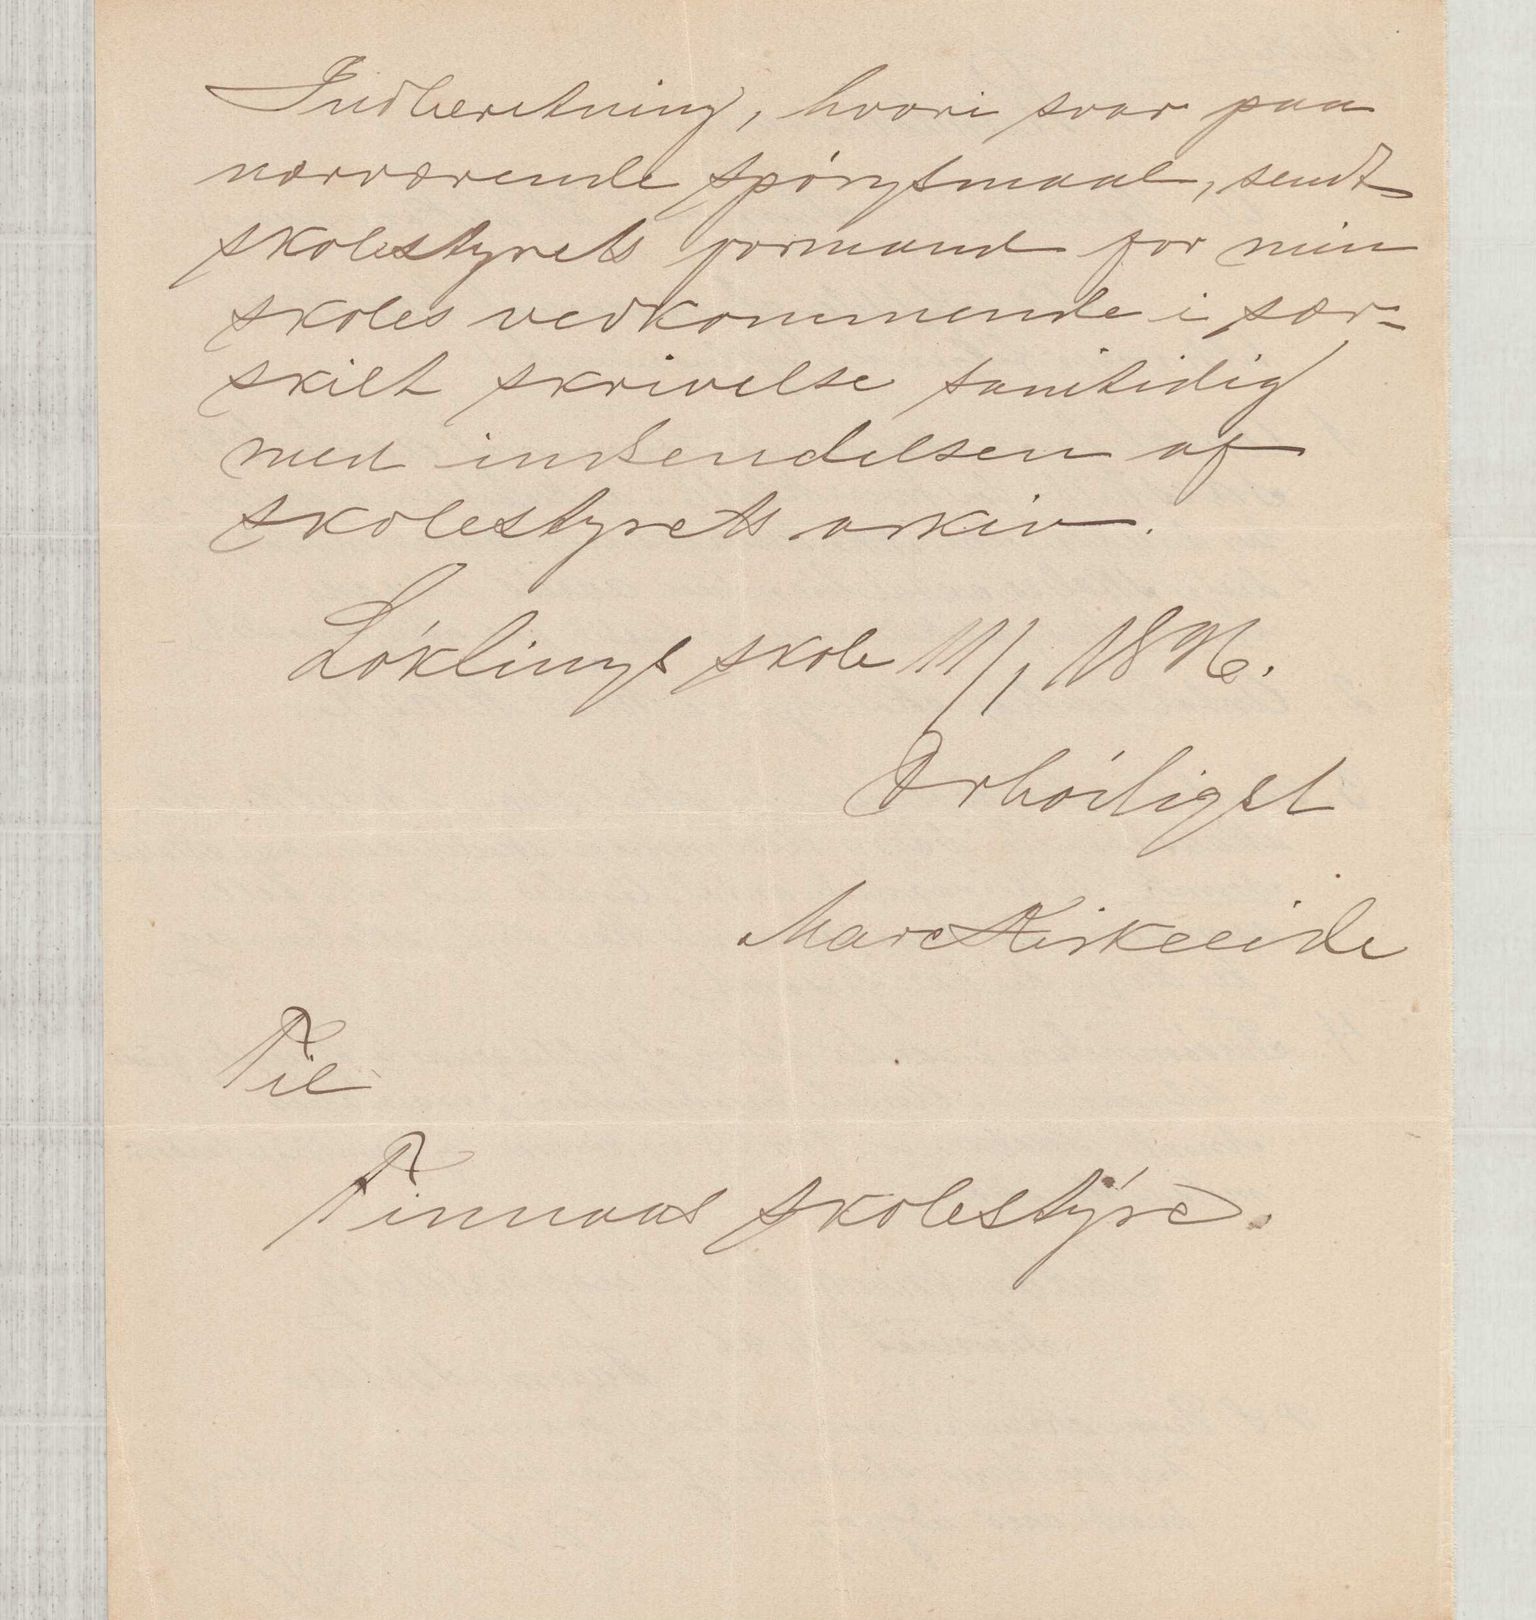 Indberetning, hvori svar paa
nærværende spórgsmaal, sendt
skolestyrets formand for min
skoles vedkommende i sær-
skilt skrivelse samtidig
med indsendelsen af
skolestyrets arkiv.
Lóklings skole 11/1 1896.
Ærbóiligst
Marc Kirkeeide
Til
Finnaas skolestyre.